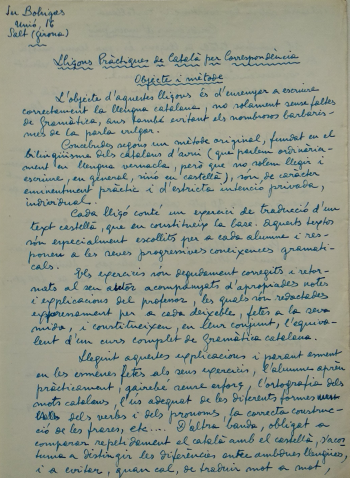 Ier Bohigas
Unió, 16
Salt (Girona)
Lliçons Pràctiques de Català per Correspondència
Objecte i mètode
L'objecte d'aquestes lliçons és d'ensenyar a escriure
correctament la llengua catalana, no solament sense faltes
de Gramàtica, ans també evitant els nombrosos barbaris-
mes de la parla vulgar.
Concebudes segons un mètode original, fundat en el
bilingüisme dels catalans d'avui (que parlem ordinària-
ment en llengua vernacla, però que no solem llegir i
escriure, en general, sinó en castellà), són de caràcter
eminentment pràctic i d'estricta intenció privada,
individual.
Cada lliçó conté un exercici de traducció d'un
text castellà, que en constitueix la base. Aquests textos
són especialment escollits per a cada alumne i res-
ponen a les seves progressives coneixences gramati-
cals.
Els exercicis són degudament corregits i retor-
nats al seu autor acompanyats d'apropiades notes
i explicacions del professor, les quals són redactades
expressament per a cada deixeble, fetes a la seva
mida, i constitueixen, en leur conjunt, l'equiva-
lent d'un curs complet de Gramàtica catalana.
Llegint aquestes explicacions i parant esment
en les esmenes fetes als seus exercicis, l'alumne aprèn
pràcticament, gairebé sense esforç, l'ortografia dels
mots catalans, l'ús adequat de les diferents formes
dels verbs i dels pronoms, la correcta construc-
ció de les frases, etc.... D'altra banda, obligat a
comparar repetidament el català amb el castellà, s'acos-
tuma a distingir les diferències entre ambdues llengües,
i a evitar, quan cal, de traduir mot a mot,